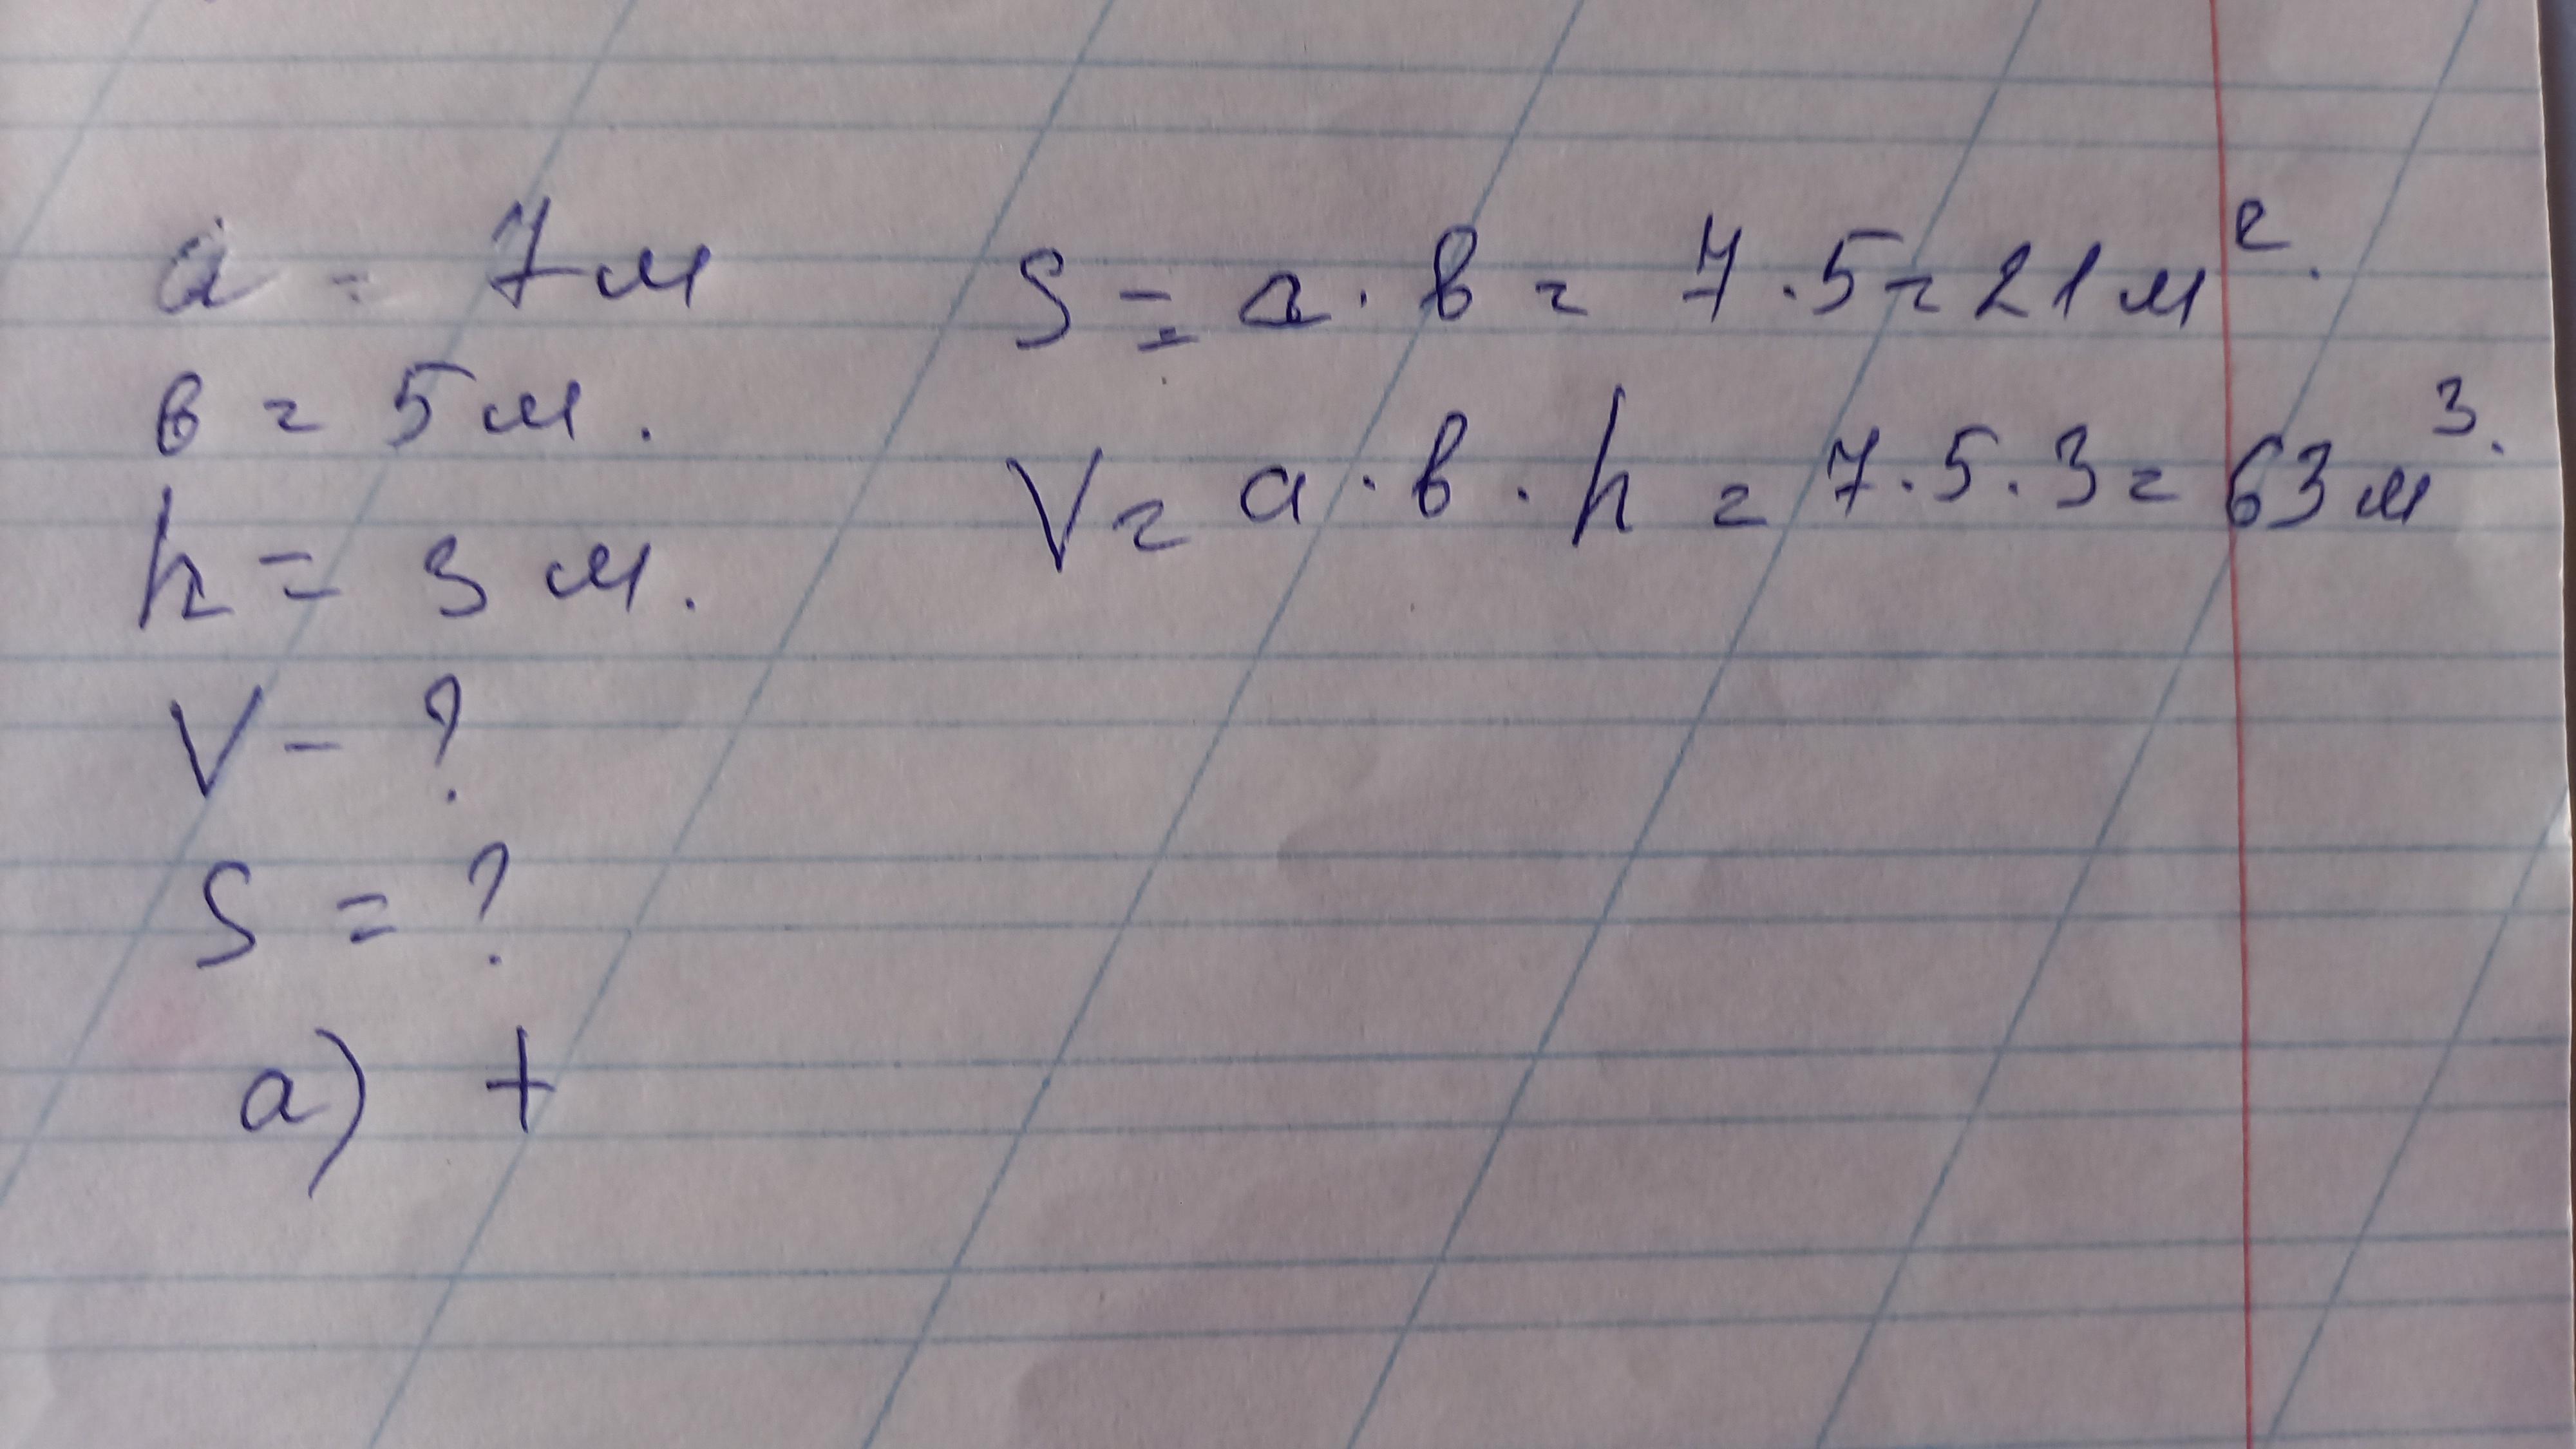 a = 7 м
в = 5 м.
h = 3 м.
V - ?
S = ?
а) +
S = a · в = 7 · 5 = 21 м².
V = a · в · h = 7 · 5 · 3 = 63 м³.